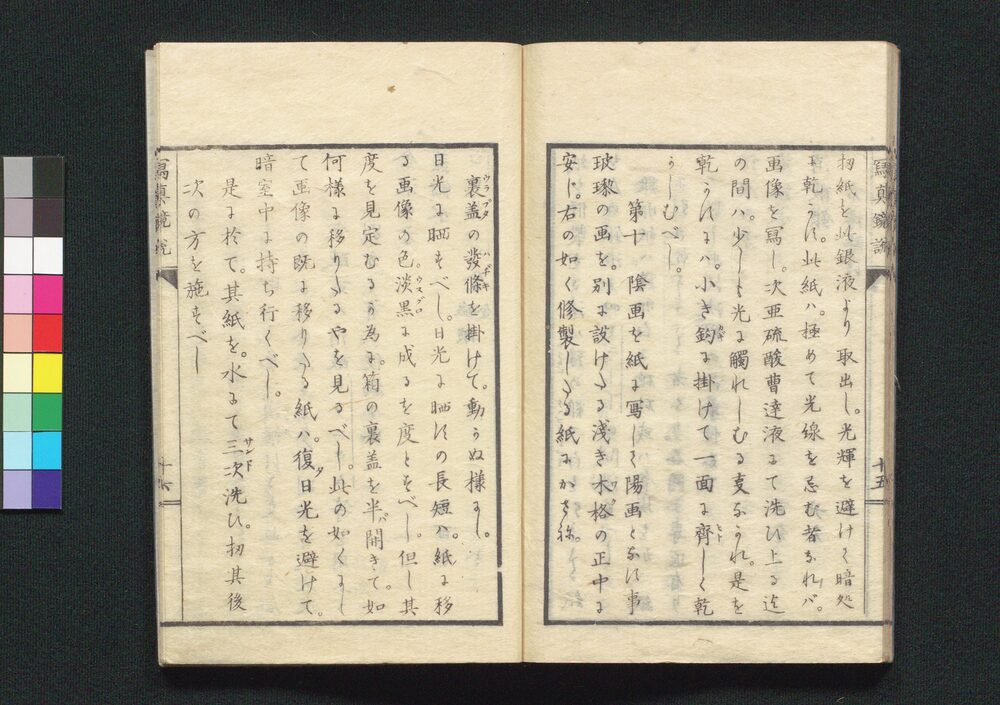 寫真鏡説
十五
扨紙を此銀液より取出し。光輝を避けて暗処
に乾かす。此紙ハ。極めて光線を忌む者なれバ。
画像を寫し。次亜硫酸曹達液にて洗ひ上る迄
の間ハ。少しも光に觸れしむる支なかれ。是を
乾かすにハ。小き鈎に掛けて一面に齊しく乾
かしむべし。
第十 陰画を紙に寫して陽画となす事
玻瓈の画を。別に設けたる淺き木格の正中に
安じ。右の如く修製したる紙にかさね。
裏蓋の發條を掛けて。動かぬ様にし。
日光に晒すべし。日光に晒すの長短ハ。紙に移
る画像の色淡黒に成るを度とすべし。但し其
度を見定むるが為に。箱の裏蓋を半バ開きて。如
何様に移りたるやを見るべし。此の如くにし
て画像の既に移りたる紙ハ。復タ日光を避けて。
暗室中に持ち行くべし。
是に於て。其紙を。水にて三次洗ひ。扨其後
次の方を施すべし
寫真鏡説
十六